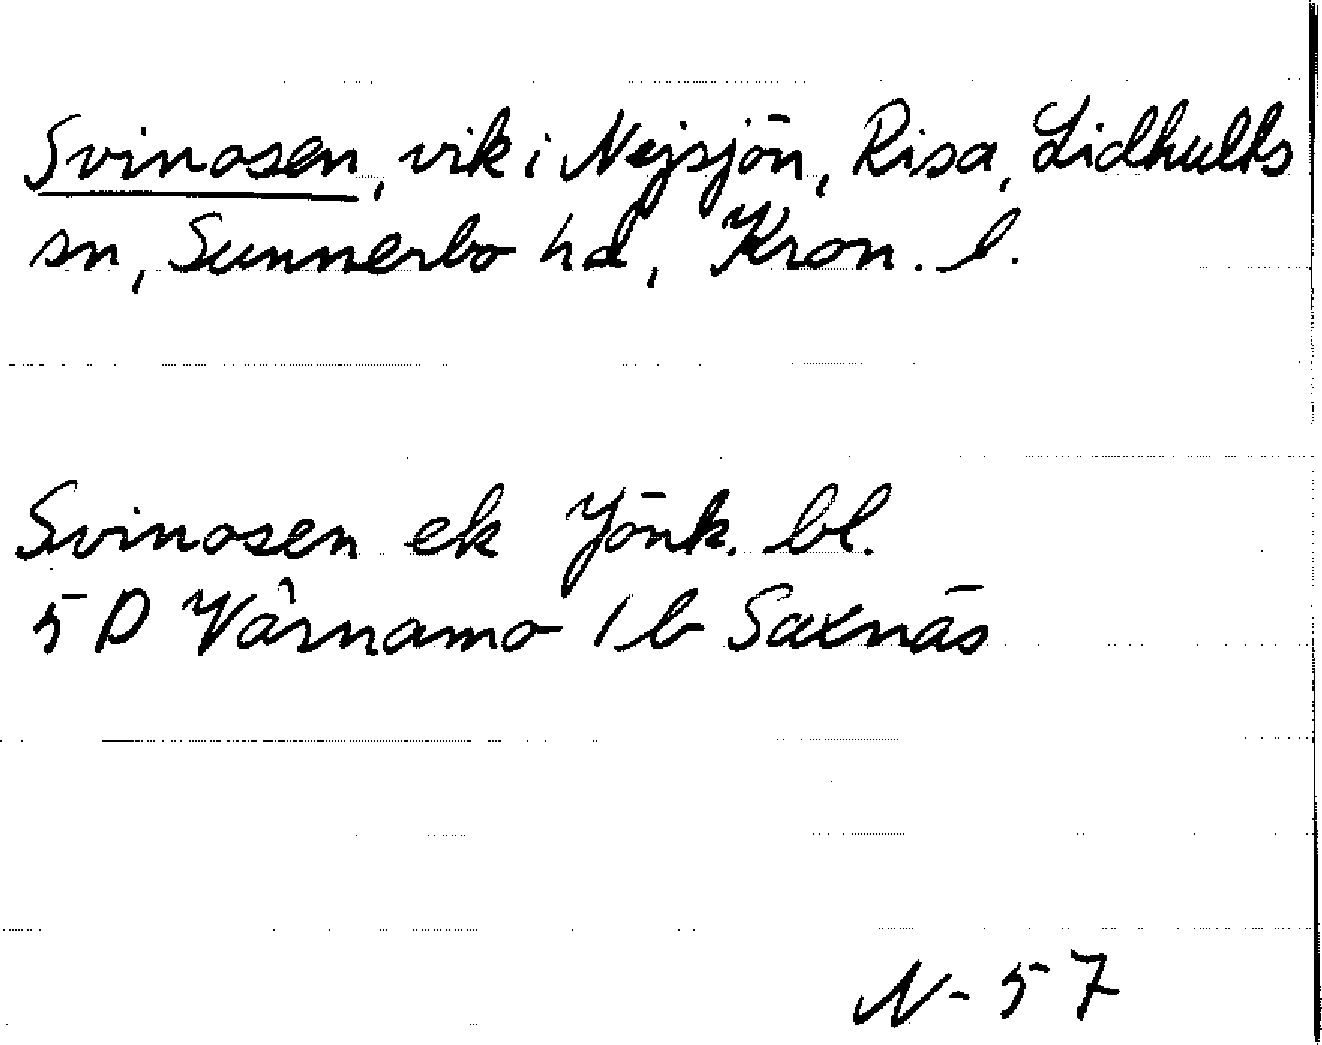 Svinosen, vik i Nejsjön, Risa, Lidhults
sn, Sunnerbo hd, Kron. l.
Svinosen ek Jönk. bl.
5 D Värnamo 1 b Saxnäs
N-57